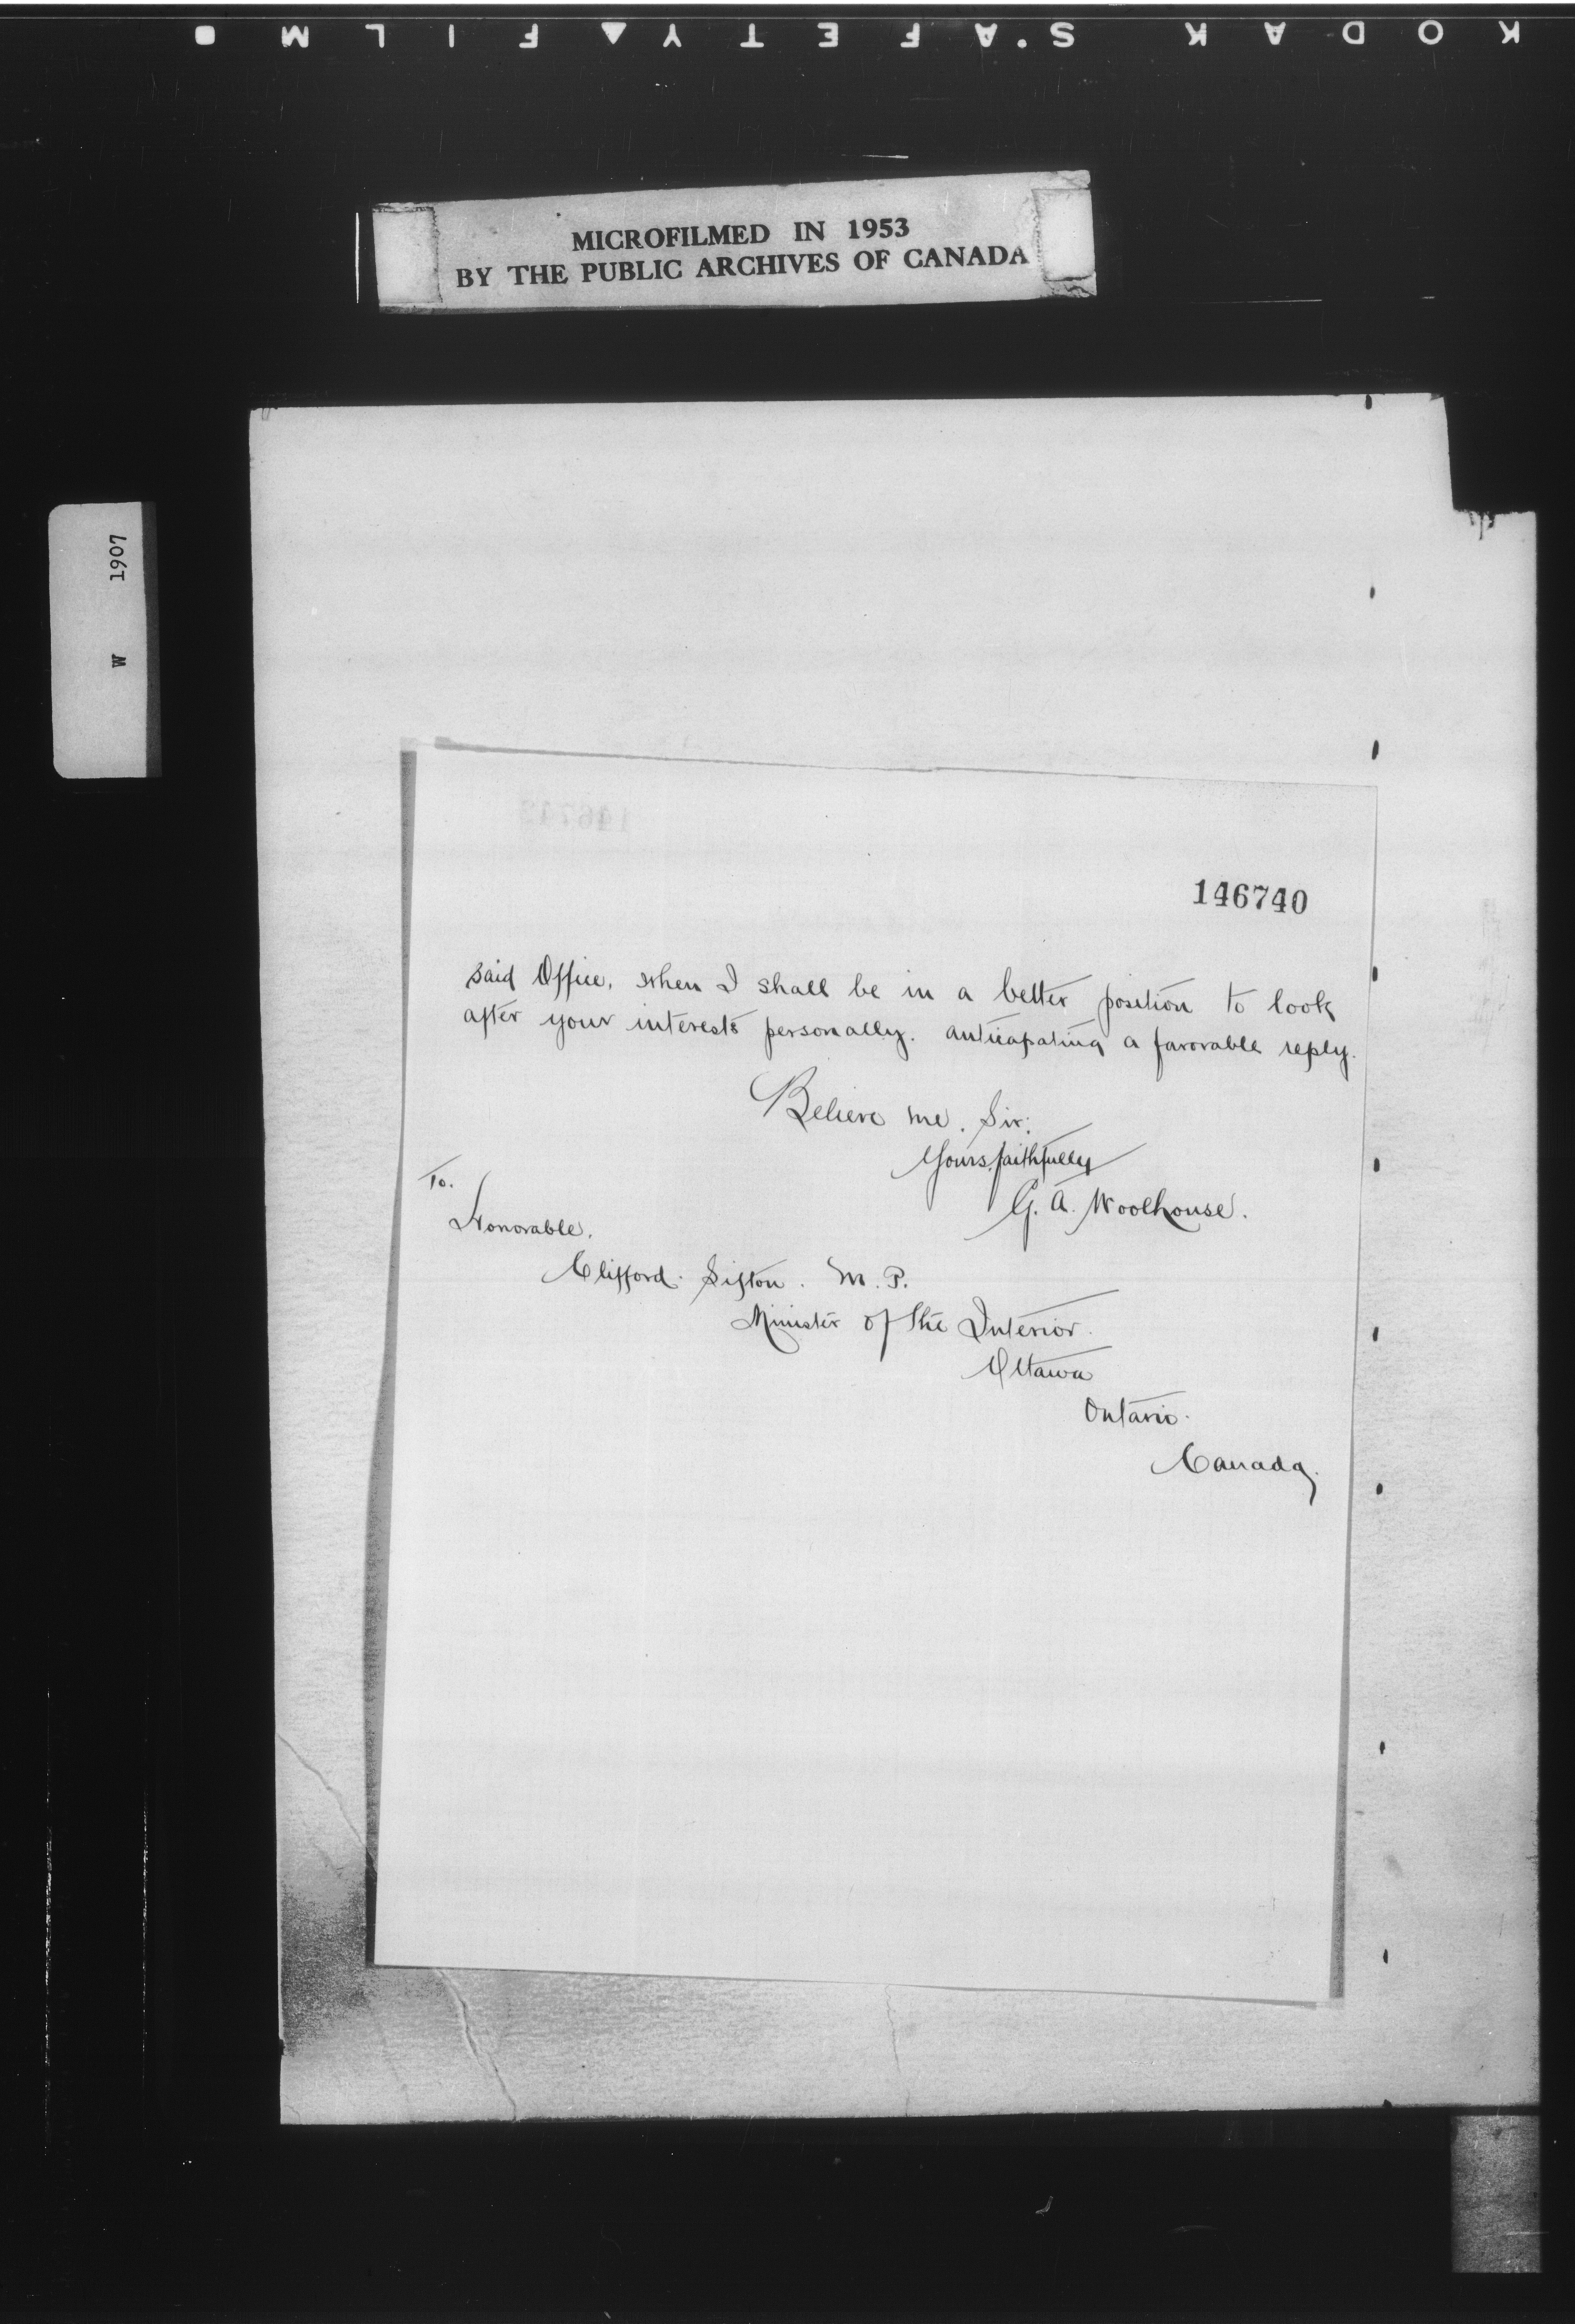 KODAK SAFETY FILM
MICROFILMED IN 1953
BY THE PUBLIC ARCHIVES OF CANADA
W 1907
146740
said Office, when I shall be in a better position to look
after your interests personally. anticapating a favorable reply.
Believe me. Sir:
Yours faithfully
G. A. Woolhouse.
To.
Honorable.
Clifford. Sifton. M. P.
Minister of the Interior.
Ottawa
Ontario.
Canada.